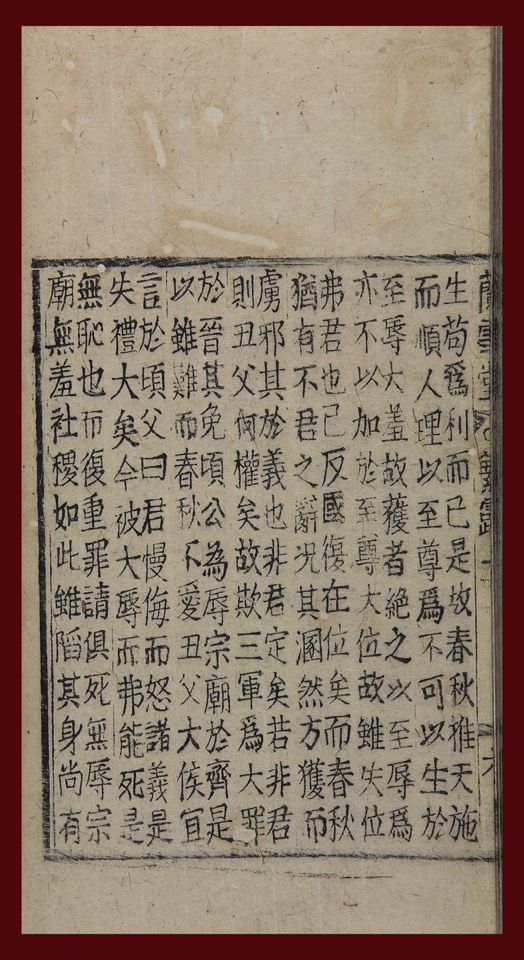 蘭雪堂
生苟爲利而已是故春秋推天施
而順人理以至尊爲不可以生於
至辱大羞故獲者絶之以至辱爲
亦不以加於至尊大位故雖失位
弗君也已反國復在位矣而春秋
猶有不君之辭况其溷然方獲而
虜邪其於義也非君定矣若非君
則丑父何權矣故欺三軍爲大罪
於晉其免頃公為辱宗廟於齊是
以雖難而春秋不愛丑父大侯宜
言於頃父曰君慢侮而怒諸義是
失禮大矣今被大辱而弗能死是
無恥也而復重罪請俱死無辱宗
廟無羞社稷如此雖陷其身尚有